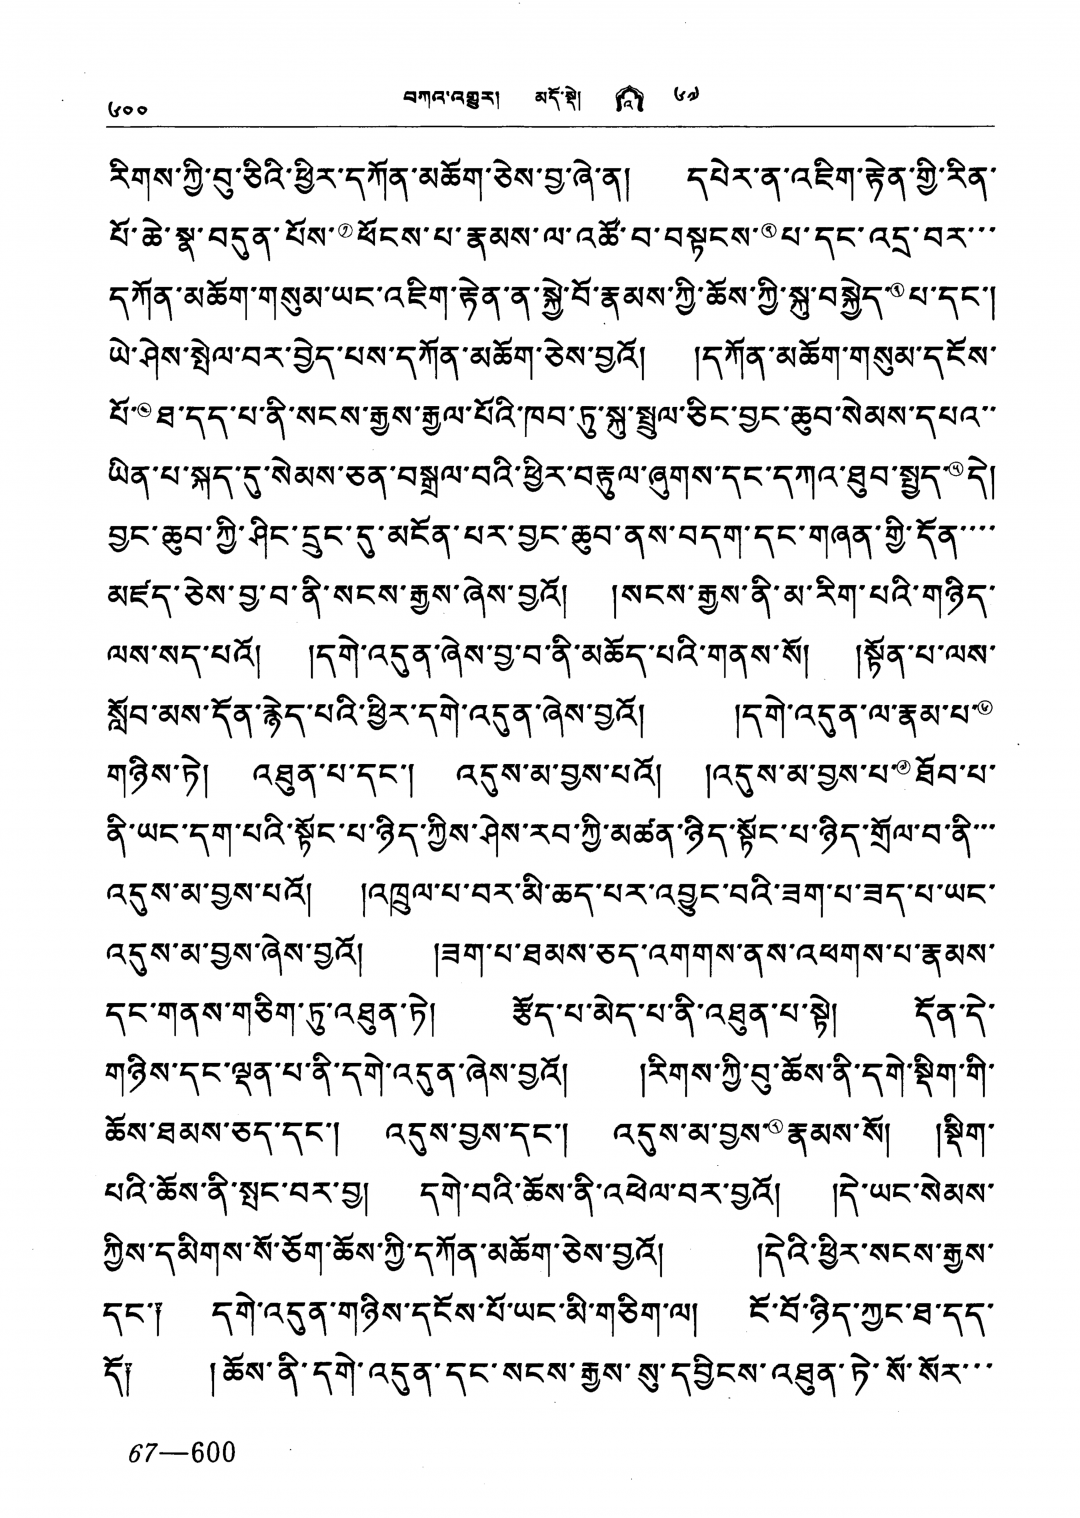 ༦༠༠ བཀའ་འགྱུར། མདོ་སྡེ། ༦༧
རིགས་ཀྱི་བུ་ཅིའི་ཕྱིར་དཀོན་མཆོག་ཅེས་བྱ་ཞེ་ན། དཔེར་ན་འཇིག་རྟེན་གྱི་རིན་
པོ་ཆེ་སྣ་བདུན་པོས་ཕོངས་པ་རྣམས་ལ་འཚོ་བ་བསྟངས་པ་དང་འདྲ་བར་་་
དཀོན་མཆོག་གསུམ་ཡང་འཇིག་རྟེན་ན་སྐྱེ་བོ་རྣམས་ཀྱི་ཆོས་ཀྱི་སྐུ་བསྐྱེད་པ་དང་།
ཡེ་ཤེས་སྤེལ་བར་བྱེད་པས་དཀོན་མཆོག་ཅེས་བྱའོ། །དཀོན་མཆོག་གསུམ་དངོས་
པོ་ཐ་དད་པ་ནི་སངས་རྒྱས་རྒྱལ་པོའི་ཁབ་ཏུ་སྐུ་སྤྲུལ་ཅིང་བྱང་ཆུབ་སེམས་དཔའ་་
ཡིན་པ་སྐད་དུ་སེམས་ཅན་བསྒྲལ་བའི་ཕྱིར་བརྟུལ་ཞུགས་དང་དཀའ་ཐུབ་སྤྱད་དེ།
བྱང་ཆུབ་ཀྱི་ཤིང་དྲུང་དུ་མངོན་པར་བྱང་ཆུབ་ནས་བདག་དང་གཞན་གྱི་དོན་་་་
མཛད་ཅེས་བྱ་བ་ནི་སངས་རྒྱས་ཞེས་བྱའོ། །སངས་རྒྱས་ནི་མ་རིག་པའི་གཉིད་
ལས་སད་པའོ། །དགེ་འདུན་ཞེས་བྱ་བ་ནི་མཆོད་པའི་གནས་སོ། །སྟོན་པ་ལས་
སློབ་མས་དོན་རྙེད་པའི་ཕྱིར་དགེ་འདུན་ཞེས་བྱའོ། །དགེ་འདུན་ལ་རྣམ་པ་
གཉིས་ཏེ། འཐུན་པ་དང་། འདུས་མ་བྱས་པའོ། །འདུས་མ་བྱས་པ་ཐོབ་པ་
ནི་ཡང་དག་པའི་སྟོང་པ་ཉིད་ཀྱིས་ཤེས་རབ་ཀྱི་མཚན་ཉིད་སྟོང་པ་ཉིད་གྲོལ་བ་ནི་་་
འདུས་མ་བྱས་པའོ། །འཁྲུལ་པ་བར་མི་ཆད་པར་འབྱུང་བའི་ཟག་པ་ཟད་པ་ཡང་
འདུས་མ་བྱས་ཞེས་བྱའོ། །ཟག་པ་ཐམས་ཅད་འགགས་ནས་འཕགས་པ་རྣམས་
དང་གནས་གཅིག་ཏུ་འཐུན་ཏེ། རྩོད་པ་མེད་པ་ནི་འཐུན་པ་སྟེ། དོན་དེ་
གཉིས་དང་ལྡན་པ་ནི་དགེ་འདུན་ཞེས་བྱའོ། །རིགས་ཀྱི་བུ་ཆོས་ནི་དགེ་སྡིག་གི་
ཆོས་ཐམས་ཅད་དང་། འདུས་བྱས་དང་། འདུས་མ་བྱས་རྣམས་སོ། །སྡིག་
པའི་ཆོས་ནི་སྤང་བར་བྱ། དགེ་བའི་ཆོས་ནི་འཕེལ་བར་བྱའོ། །དེ་ཡང་སེམས་
ཀྱིས་དམིགས་སོ་ཅོག་ཆོས་ཀྱི་དཀོན་མཆོག་ཅེས་བྱའོ། །དེའི་ཕྱིར་སངས་རྒྱས་
དང་། དགེ་འདུན་གཉིས་དངོས་པོ་ཡང་མི་གཅིག་ལ། ངོ་བོ་ཉིད་ཀྱང་ཐ་དད་
དོ། །ཆོས་ནི་དགེ་འདུན་དང་སངས་རྒྱས་སུ་དབྱིངས་འཐུན་ཏེ་སོ་སོར་་་
67—600